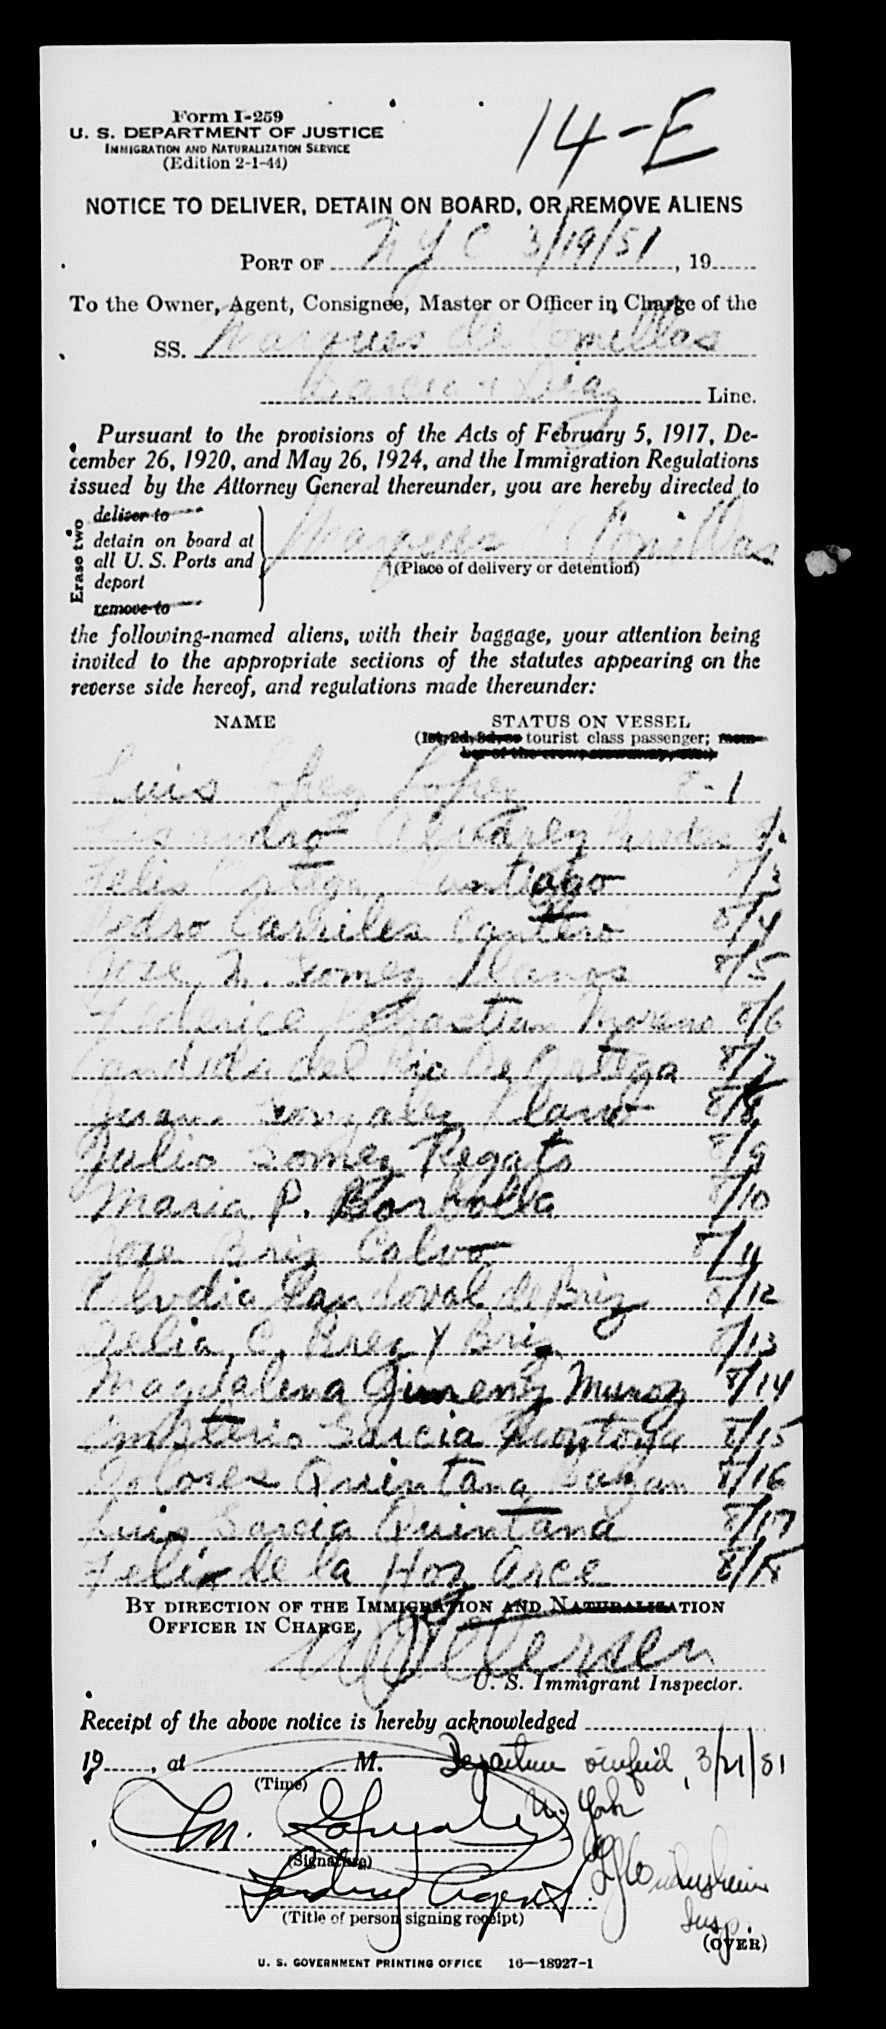 Form I-259
14-E
U. S. DEPARTMENT OF JUSTICE
IMMIGRATION AND NATURALIZATION SERVICE
(Edition 2-1-44)
NOTICE TO DELIVER, DETAIN ON BOARD, OR REMOVE ALIENS
PORT OF NYC 3/19/51, 19
To the Owner, Agent, Consignee, Master or Officer in Charge of the
SS. Marques de Comillas
Garcia & Diaz Line.
Pursuant to the provisions of the Acts of February 5, 1917, De-
cember 26, 1920, and May 26, 1924, and the Immigration Regulations
issued by the Attorney General thereunder, you are hereby directed to
Erase two
deliver to
detain on board at
all U. S. Ports and
deport
remove to
Marques de Comillas
(Place of delivery or detention)
the following-named aliens, with their baggage, your attention being
invited to the appropriate sections of the statutes appearing on the
reverse side hereof, and regulations made thereunder:
NAME STATUS ON VESSEL
(1st, 2d, 3d, or tourist class passenger; mem-
ber of the crew, stowaway, etc.)
Luis Lopez Lopez 8-1
Lisandro Alvarez 8/2
Felix Ortega Santiago 8/3
Pedro Carriles Cantero 8/4
Jose M. Gomez Llanos 8/5
Federico Sebastian Moreno 8/6
Candida del Rio de Ortega 8/7
Juan Gonzalez Llano 8/8
Julio Gomez Regato 8/9
Maria P. Borbolla 8/10
Jose Briz Calvo 8/11
Clvdia Sandoval de Briz 8/12
Delia C. Briz Y Briz 8/13
Magdalena Gimenez Munoz 8/14
Emeterio Garcia Montoya 8/15
Dolores Quintana 8/16
Luis Garcia Quintana 8/17
Felix de la Hoz Arce 8/18
BY DIRECTION OF THE IMMIGRATION AND NATURALIZATION
OFFICER IN CHARGE,
Petersen
U. S. Immigrant Inspector.
Receipt of the above notice is hereby acknowledged
19, at M. Departure verified, 3/21/51
(Time)
N. York
M. Gonzalez
(Signature)
Landing Agent
Insp.
(Title of person signing receipt)
(OVER)
U. S. GOVERNMENT PRINTING OFFICE 16—18927-1